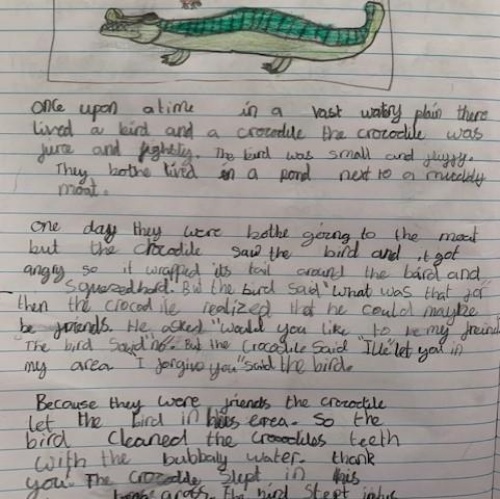 once upon a time in a vast watry plain there
lived a bird and a crocodile the crocodile was
furce and fightly. The bird was small and fluffy.
They bothe lived in a pond next to a muddy
moat.
one day they were bothe going to the moat
but the crocodile saw the bird and it got
angry so it wrapped its tail around the bard and
Squeezed hard. But the bird said "What was that for"
then the crocodile realized that he could maybe
be friends. He asked "Would you like to be my freind
The bird Said "no". But the Crocodile Said "I'le let you in
my area "I forgive you" said the bird.
Because they were friends the crocodile
let the bird in his erea. So the
bird cleaned the crocodiles teeth
with the bubbaly water. thank
you. The Crocodile Slept in his
grass. The bird Slept